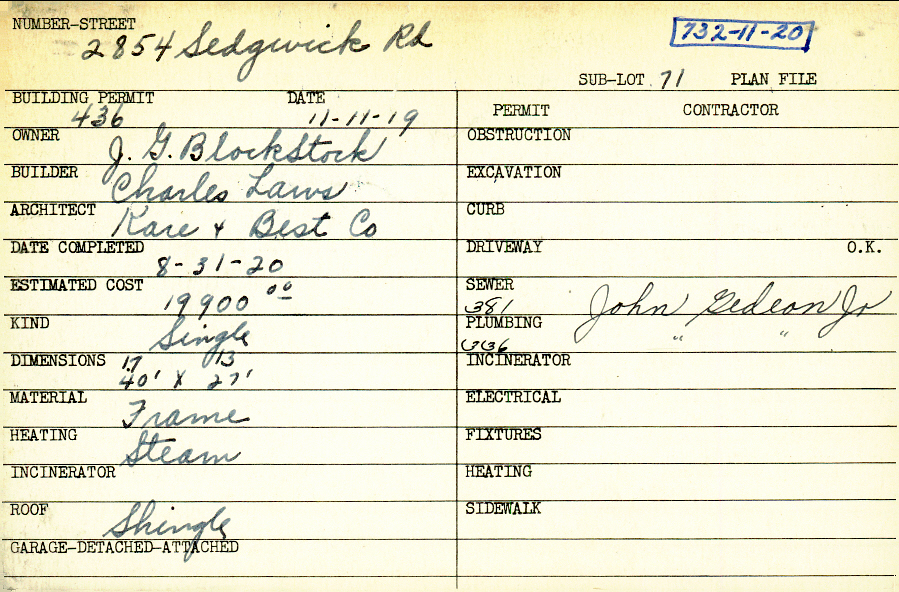 NUMBER-STREET
2854 Sedgwick Rd
732-11-20
SUB-LOT 71 PLAN FILE
BUILDING PERMIT DATE
436 11-11-19
PERMIT CONTRACTOR
OWNER J. G. Blockstock
OBSTRUCTION
BUILDER Charles Laws
EXCAVATION
ARCHITECT Kare + Best Co
CURB
DATE COMPLETED
8-31-20
DRIVEWAY O.K.
ESTIMATED COST
19900 00
SEWER
381 John Gedeon Jr
KIND
Single
PLUMBING
" "
DIMENSIONS 17 13
40' X 27'
INCINERATOR
MATERIAL
Frame
ELECTRICAL
HEATING
Steam
FIXTURES
INCINERATOR
HEATING
ROOF
Shingle
SIDEWALK
GARAGE-DETACHED-ATTACHED